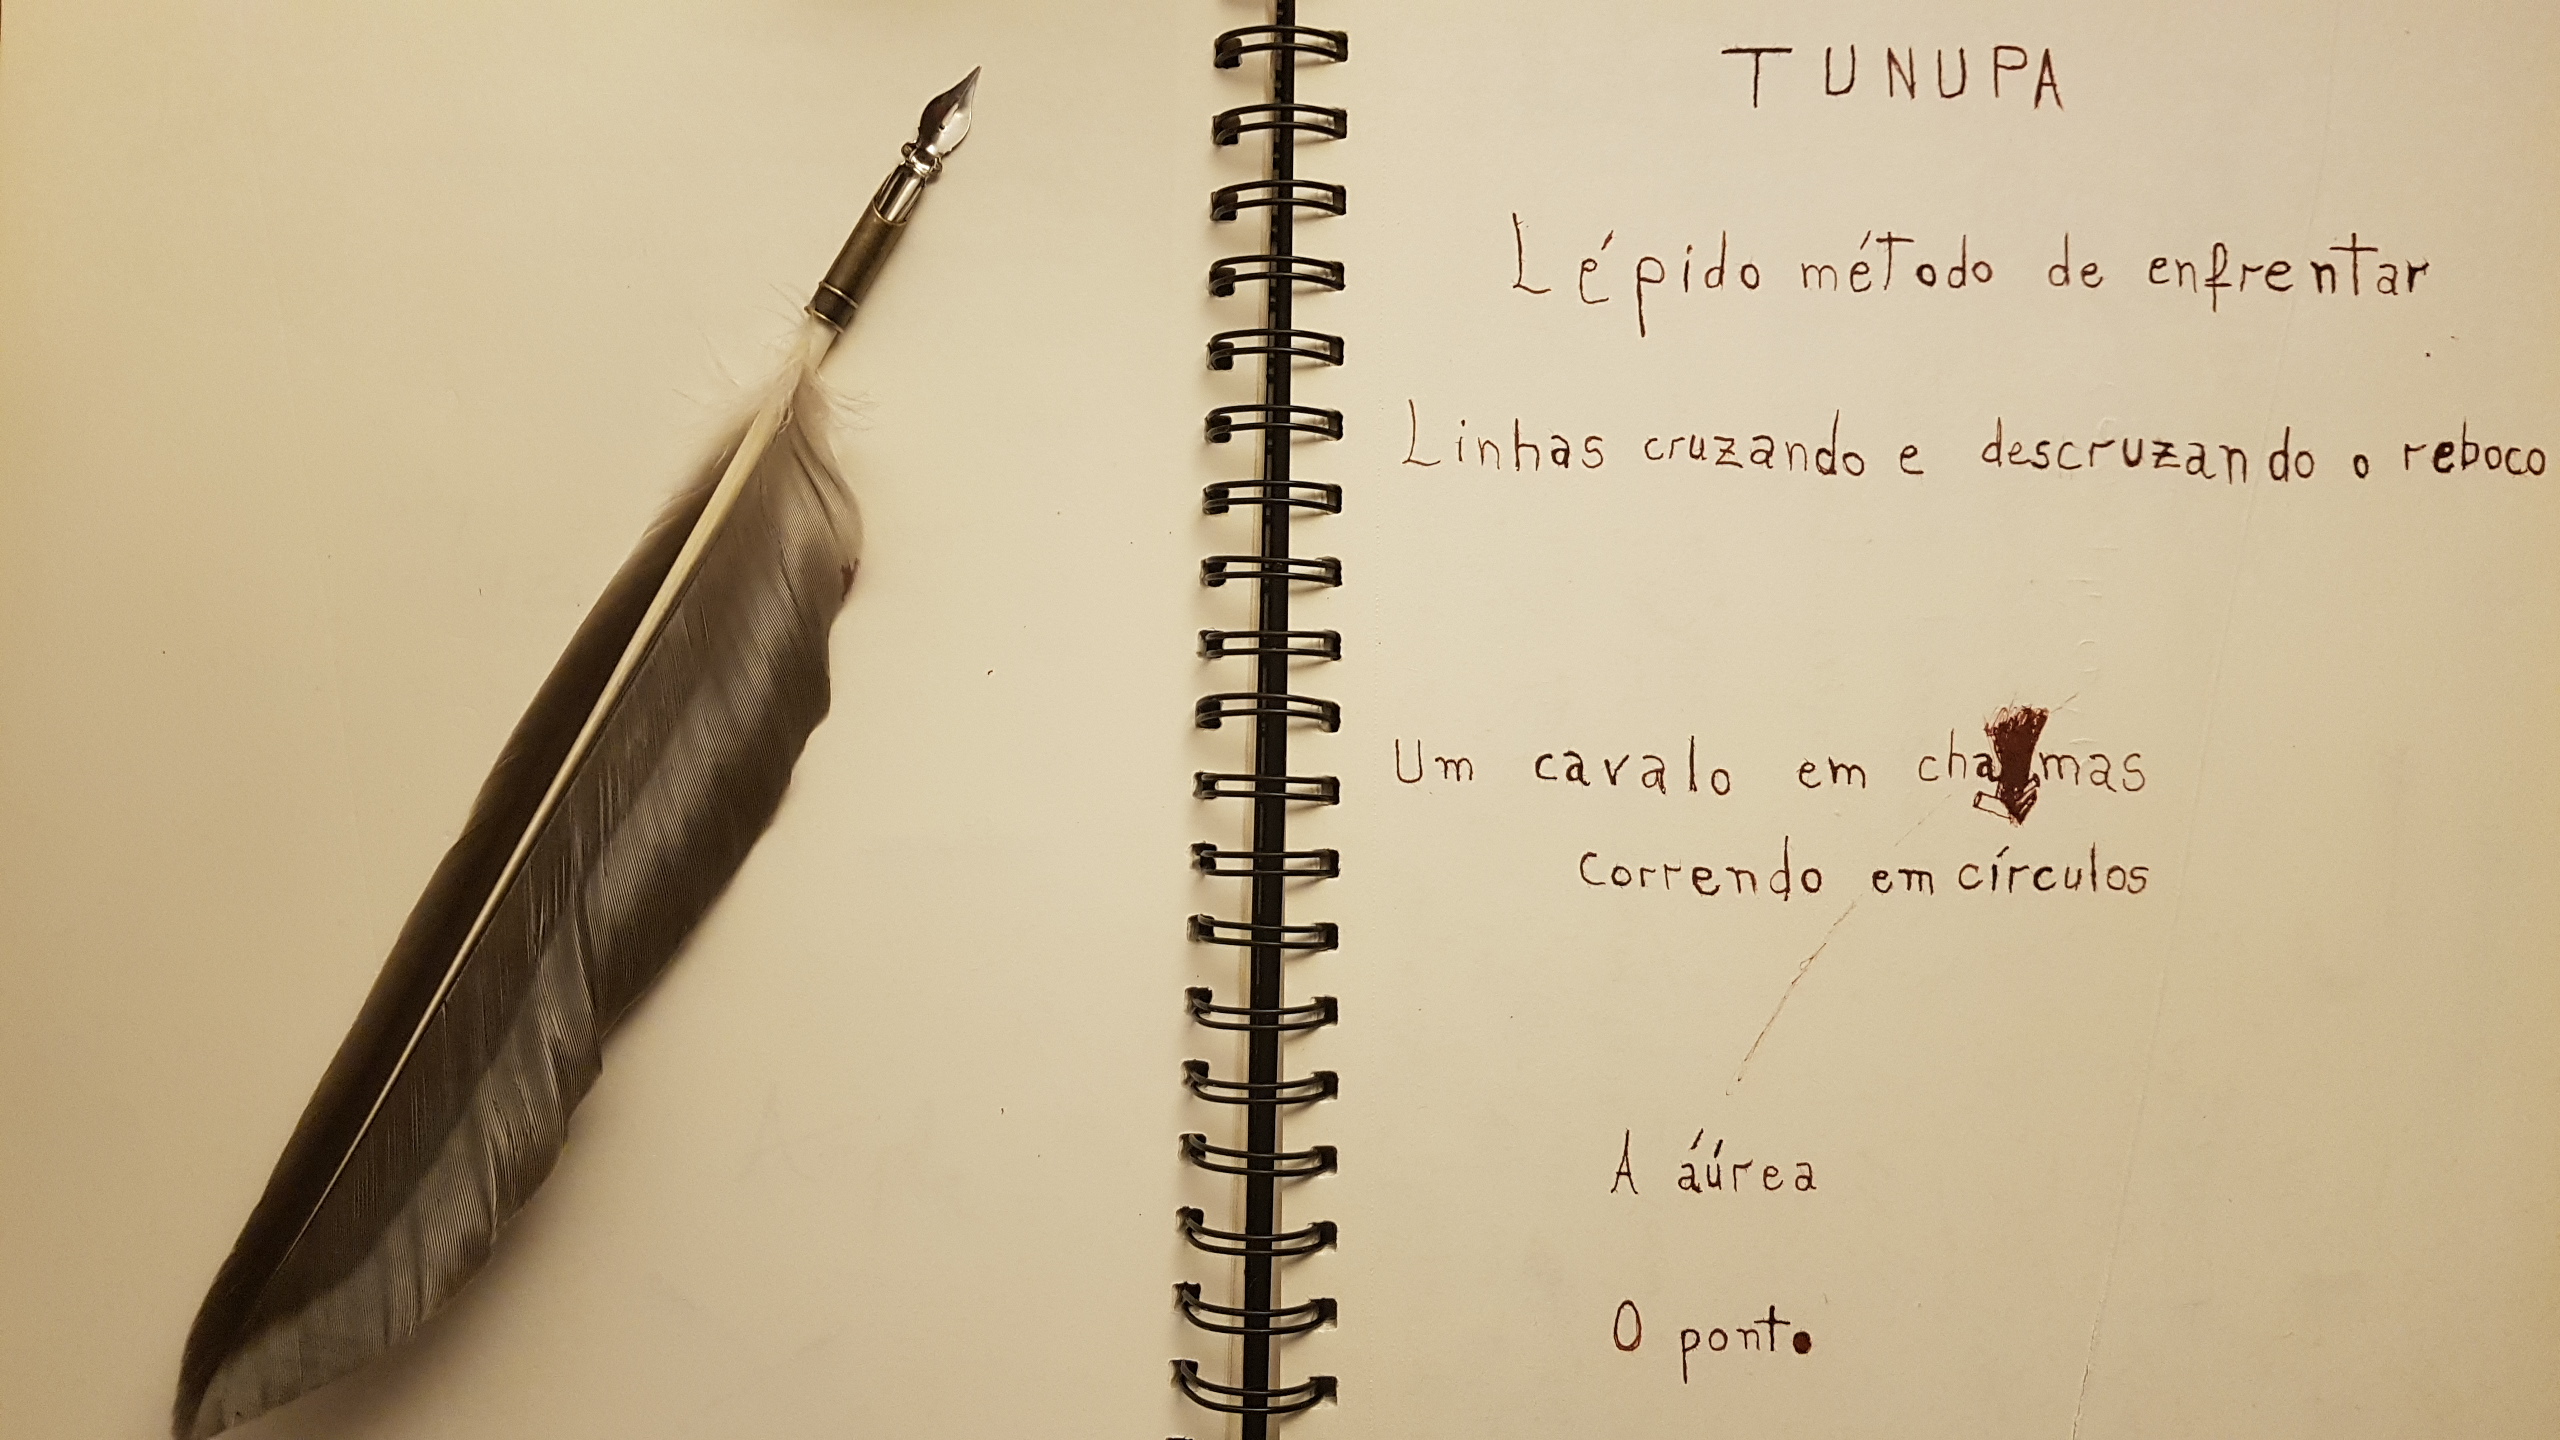 TUNUPA
Lépido método de enfrentar
Linhas cruzando e descruzando o reboco
Um cavalo em chamas
correndo em círculos
A áúrea
O ponto